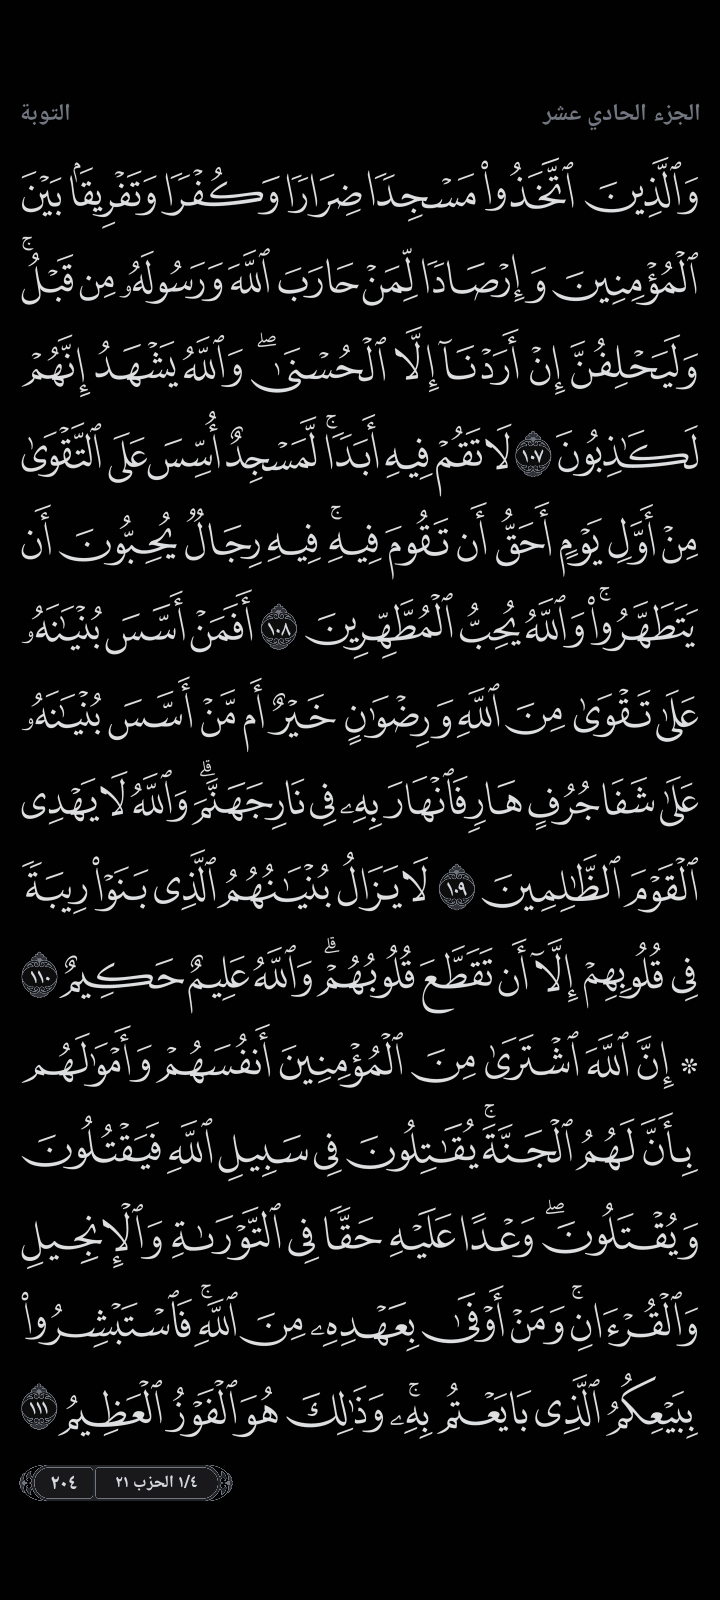 الجزء الحادي عشر
التوبة
وَٱلَّذِينَ ٱتَّخَذُوا۟ مَسْجِدًا ضِرَارًا وَكُفْرًا وَتَفْرِيقًۢا بَيْنَ
ٱلْمُؤْمِنِينَ وَإِرْصَادًا لِّمَنْ حَارَبَ ٱللَّهَ وَرَسُولَهُۥ مِن قَبْلُ ۚ
وَلَيَحْلِفُنَّ إِنْ أَرَدْنَآ إِلَّا ٱلْحُسْنَىٰ ۖ وَٱللَّهُ يَشْهَدُ إِنَّهُمْ
لَكَـٰذِبُونَ ١٠٧ لَا تَقُمْ فِيهِ أَبَدًا ۚ لَّمَسْجِدٌ أُسِّسَ عَلَى ٱلتَّقْوَىٰ
مِنْ أَوَّلِ يَوْمٍ أَحَقُّ أَن تَقُومَ فِيهِ ۚ فِيهِ رِجَالٌ يُحِبُّونَ أَن
يَتَطَهَّرُوا۟ ۚ وَٱللَّهُ يُحِبُّ ٱلْمُطَّهِّرِينَ ١٠٨ أَفَمَنْ أَسَّسَ بُنْيَـٰنَهُۥ
عَلَىٰ تَقْوَىٰ مِنَ ٱللَّهِ وَرِضْوَٰنٍ خَيْرٌ أَم مَّنْ أَسَّسَ بُنْيَـٰنَهُۥ
عَلَىٰ شَفَا جُرُفٍ هَارٍ فَٱنْهَارَ بِهِۦ فِى نَارِ جَهَنَّمَ ۗ وَٱللَّهُ لَا يَهْدِى
ٱلْقَوْمَ ٱلظَّـٰلِمِينَ ١٠٩ لَا يَزَالُ بُنْيَـٰنُهُمُ ٱلَّذِى بَنَوْا۟ رِيبَةً
فِى قُلُوبِهِمْ إِلَّآ أَن تَقَطَّعَ قُلُوبُهُمْ ۗ وَٱللَّهُ عَلِيمٌ حَكِيمٌ ١١٠
۞ إِنَّ ٱللَّهَ ٱشْتَرَىٰ مِنَ ٱلْمُؤْمِنِينَ أَنفُسَهُمْ وَأَمْوَٰلَهُم
بِأَنَّ لَهُمُ ٱلْجَنَّةَ ۚ يُقَـٰتِلُونَ فِى سَبِيلِ ٱللَّهِ فَيَقْتُلُونَ
وَيُقْتَلُونَ ۖ وَعْدًا عَلَيْهِ حَقًّا فِى ٱلتَّوْرَىٰةِ وَٱلْإِنجِيلِ
وَٱلْقُرْءَانِ ۚ وَمَنْ أَوْفَىٰ بِعَهْدِهِۦ مِنَ ٱللَّهِ ۚ فَٱسْتَبْشِرُوا۟
بِبَيْعِكُمُ ٱلَّذِى بَايَعْتُم بِهِۦ ۚ وَذَٰلِكَ هُوَ ٱلْفَوْزُ ٱلْعَظِيمُ ١١١
١/٤ الحزب ٢١
٢٠٤